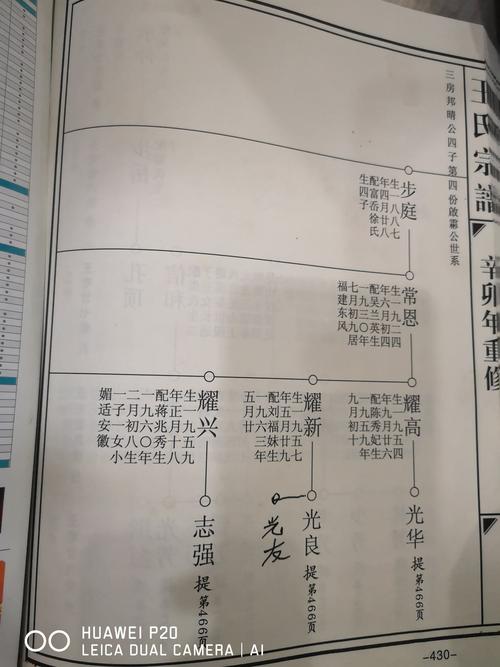 王氏宗譜 辛卯年重修
三房邦晴公四子第四份啟霖公世系
步庭
生一八八七
年四月廿八
配富岳徐氏
生四子
常恩
生一九二四
年六月初四
配吴兰英生
一九三〇年
七月初三居
福建东风
耀高
生一九五六
年九月廿四
配陈秀妃生
一九五九年
九月初十
耀新
生一九五七
年五月廿九
配刘福妹生
一九六三年
五月廿
耀兴
生一九五八
年正月十九
配蒋兆秀生
一九六〇年
二月初八生
一子一女小
媚适安徽
光华 提第466页
光良 提第466页
光友
志强 提第466页
-430-
HUAWEI P20
LEICA DUAL CAMERA | AI